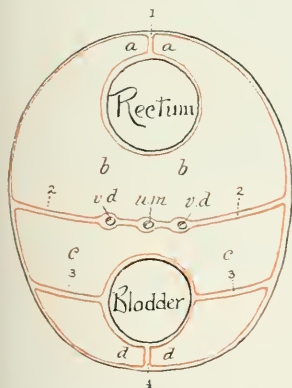 1
a a
Rectum
b b
2 v.d u.m v.d 2
c c
3 3
Bladder
d d
4